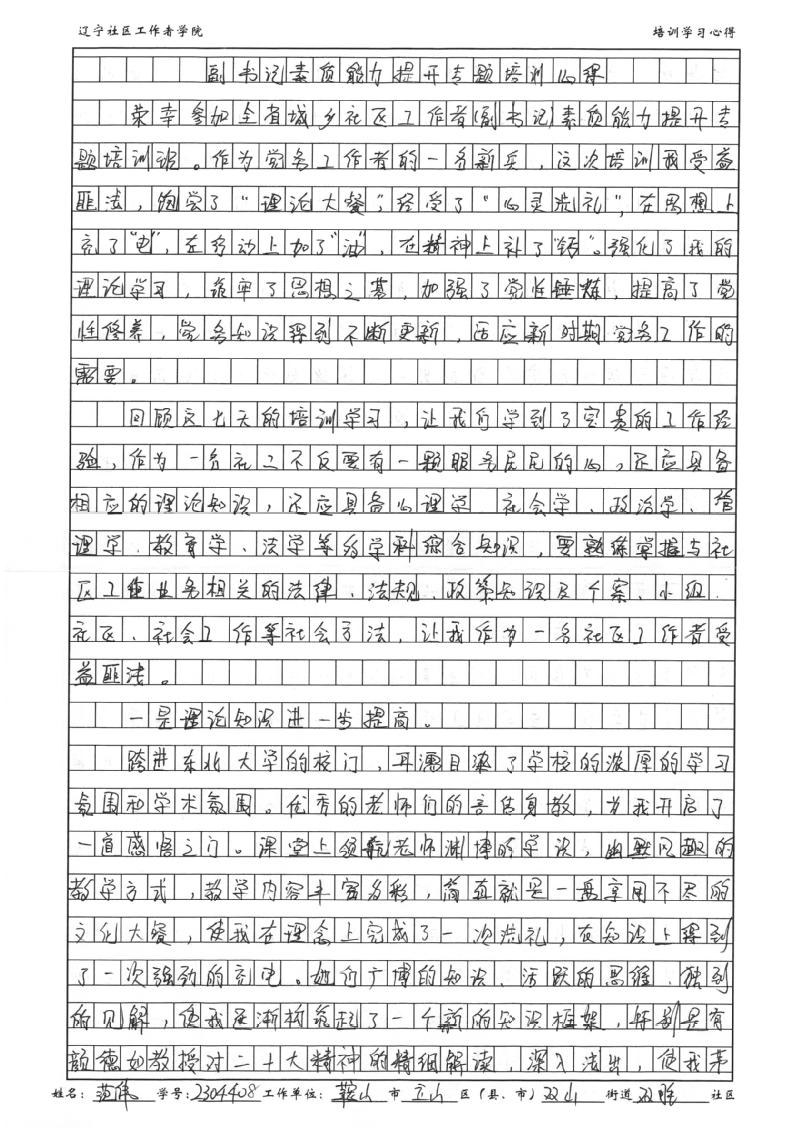 辽宁社区工作者学院 培训学习心得
副书记素质能力提升专题培训心得
荣幸参加全省城乡社区工作者(副书记)素质能力提升专
题培训班。作为党务工作者的一名新兵，这次培训我受益
匪浅，饱尝了“理论大餐”，经受了“心灵洗礼”，在思想上
充了“电”，在劳动上加了“油”，在精神上补了“钙”。强化了我的
理论学习，筑牢了思想之基，加强了党性锤炼，提高了党
性修养，党务知识得到不断更新，适应新时期党务工作的
需要。
回顾这七天的培训学习，让我们学到了宝贵的工作经
验，作为一名社工不仅要有一颗服务居民的心，还应具备
相应的理论知识，还应具备心理学、社会学、政治学、管
理学、教育学、法学等的学科综合知识，要熟练掌握与社
区工作业务相关的法律、法规、政策知识及个案、小组、
社区、社会工作等社会方法，让我作为一名社区工作者受
益匪浅。
一是理论知识进一步提高。
跨进东北大学的校门，耳濡目染了学校的浓厚的学习
氛围和学术氛围。优秀的老师们的言传身教，为我开启了
一道感悟之门。课堂上领航老师渊博的学识，幽默风趣的
教学方式，教学内容丰富多彩，简直就是一盘享用不尽的
文化大餐，使我在理念上完成了一次洗礼，在知识上得到
了一次强劲的充电。她们广博的知识、活跃的思维、独到
的见解，使我逐渐构筑起了一个新的知识框架，特别是有
颜德如教授对二十大精神的精细解读，深入浅出，使我茅
姓名：范伟 学号：2304408 工作单位：鞍山 市 立山 区（县、市）双山 街道 双胜 社区